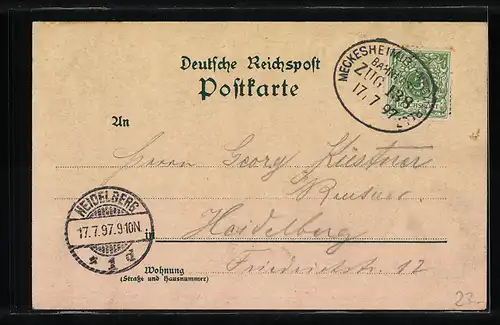 Deutsche Reichspost
Postkarte
MECKESHEIM
BAHNPOST
ZUG 138
17. 7 97
An
Herrn Georg Küstner
Rentner
in Heidelberg
Friedrichstr. 12
HEIDELBERG
17.7.97.9-10N.
* 1 d
Wohnung
(Straße und Hausnummer)